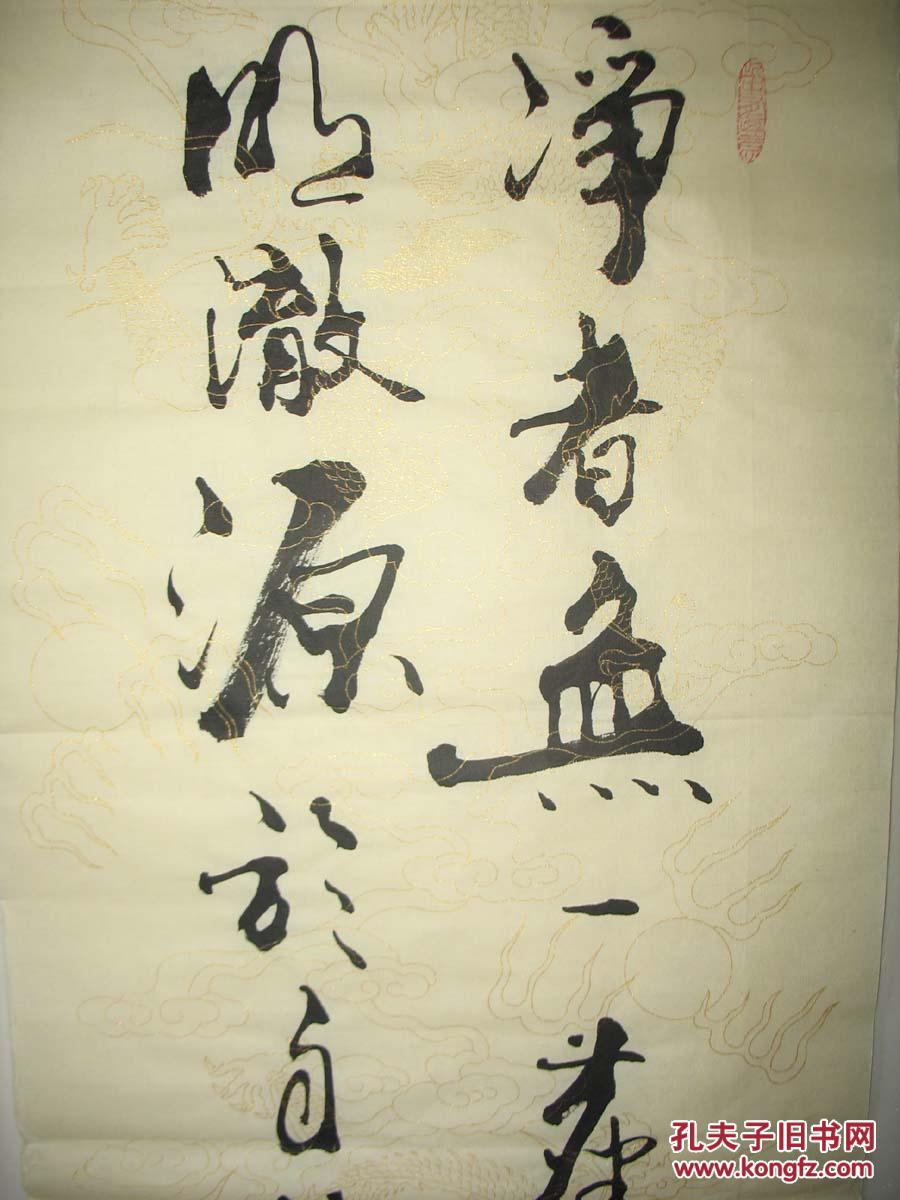 净者無一
明澈源於自
孔夫子旧书网
www.kongfz.com